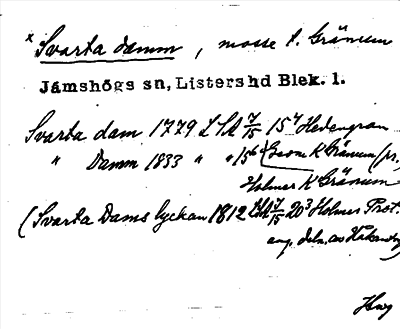 * Svarta damm, mosse t. Gränum
Jämshögs sn, Listershd Blek. l.
Svarta dam 1779 LSA 7/15 15⁴ Hedengran
" Damm 1833 " " 15⁶ Geom K Gränum
Holmer K Gränum
(Svarta Dams lyckan 1812 LSA 7/15 20³ Holmer Prot.
ang. deln. av